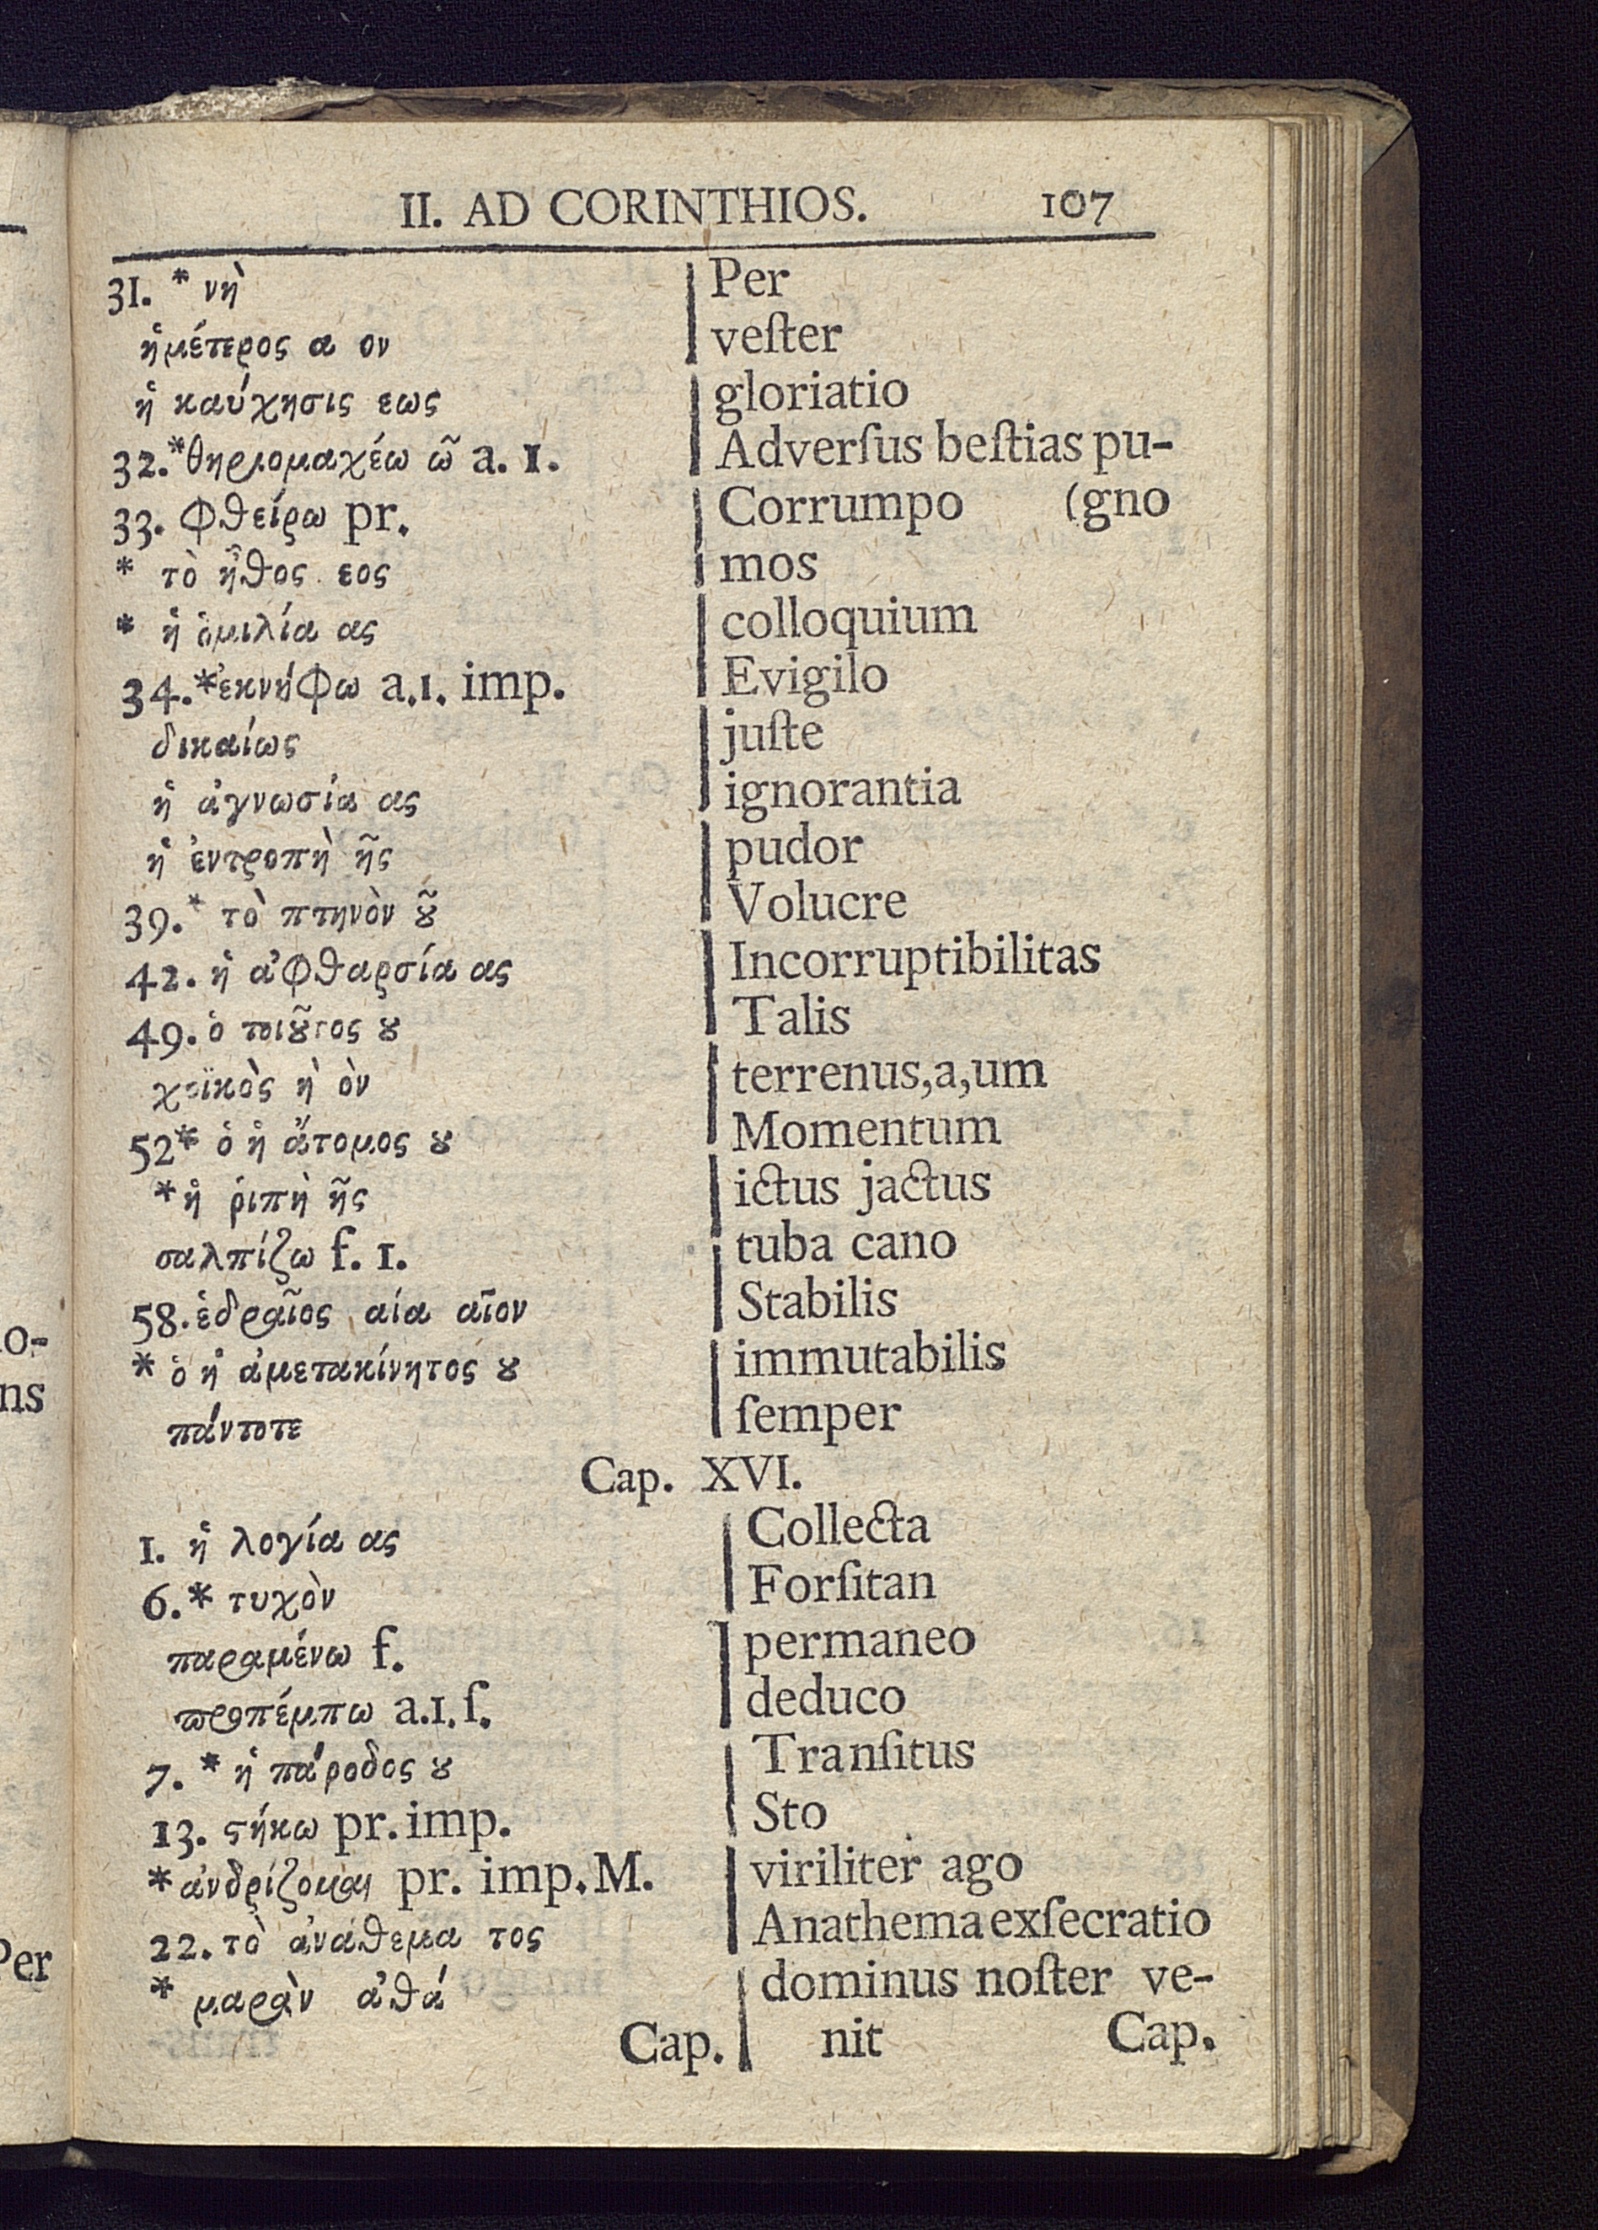 II. AD CORINTHIOS. 107
31. * νὴ Per
ἡμέτερος α ον veſter
ἡ καύχησις εως gloriatio
32.*θηριομαχέω ῶ a. 1. Adverſus beſtias pu-
33. φθείρω pr. Corrumpo (gno
* τὸ ἦθος εος mos
* ἡ ὁμιλία ας colloquium
34.*ἐκνήφω a.1. imp. Evigilo
δικαίως juſte
ἡ ἀγνωσία ας ignorantia
ἡ ἐντροπὴ ῆς pudor
39.* τὸ πτηνὸν ȣ͂ Volucre
42. ἡ ἀφθαρσία ας Incorruptibilitas
49. ὁ τοιȣ͂τος ȣ Talis
χοϊκὸς ὴ ὸν terrenus,a,um
52* ὁ ἡ ἄτομος ȣ Momentum
* ἡ ῥιπὴ ῆς ictus jactus
σαλπίζω f. 1. tuba cano
58. ἑδραῖος αία αῖον Stabilis
* ὁ ἡ ἀμετακίνητος ȣ immutabilis
πάντοτε ſemper
Cap. XVI.
1. ἡ λογία ας Collecta
6.* τυχὸν Forſitan
παραμένω f. permaneo
προπέμπω a.1. ſ. deduco
7. * ἡ πάροδος ȣ Tranſitus
13. ϛήκω pr. imp. Sto
* ἀνδρίζομαι pr. imp. M. viriliter ago
22. τὸ ἀνάθεμα τος Anathema exſecratio
* μαρὰν ἀθά dominus noſter ve-
Cap. nit Cap.